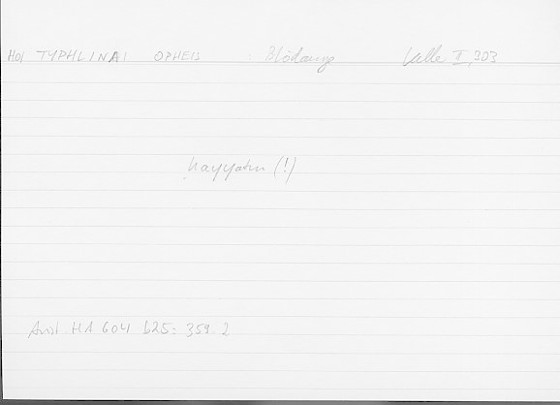 HOI TYPHLINAI OPHEIS Blödauge Kelle II, 303
ḥayyatun (!)
Arist. HA 604 b25: 359.2